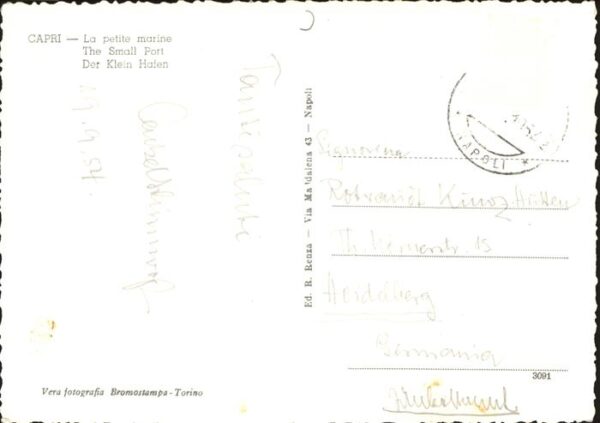 CAPRI — La petite marine
The Small Port
Der Klein Hafen
19.9.54.
Tanti saluti
Ed. R. Renza — Via Maddalena 43 — Napoli
NAPOLI
Signorina
Th. Körnerstr. 15
Heidelberg
Germania
3091
Vera fotografia Bromostampa - Torino